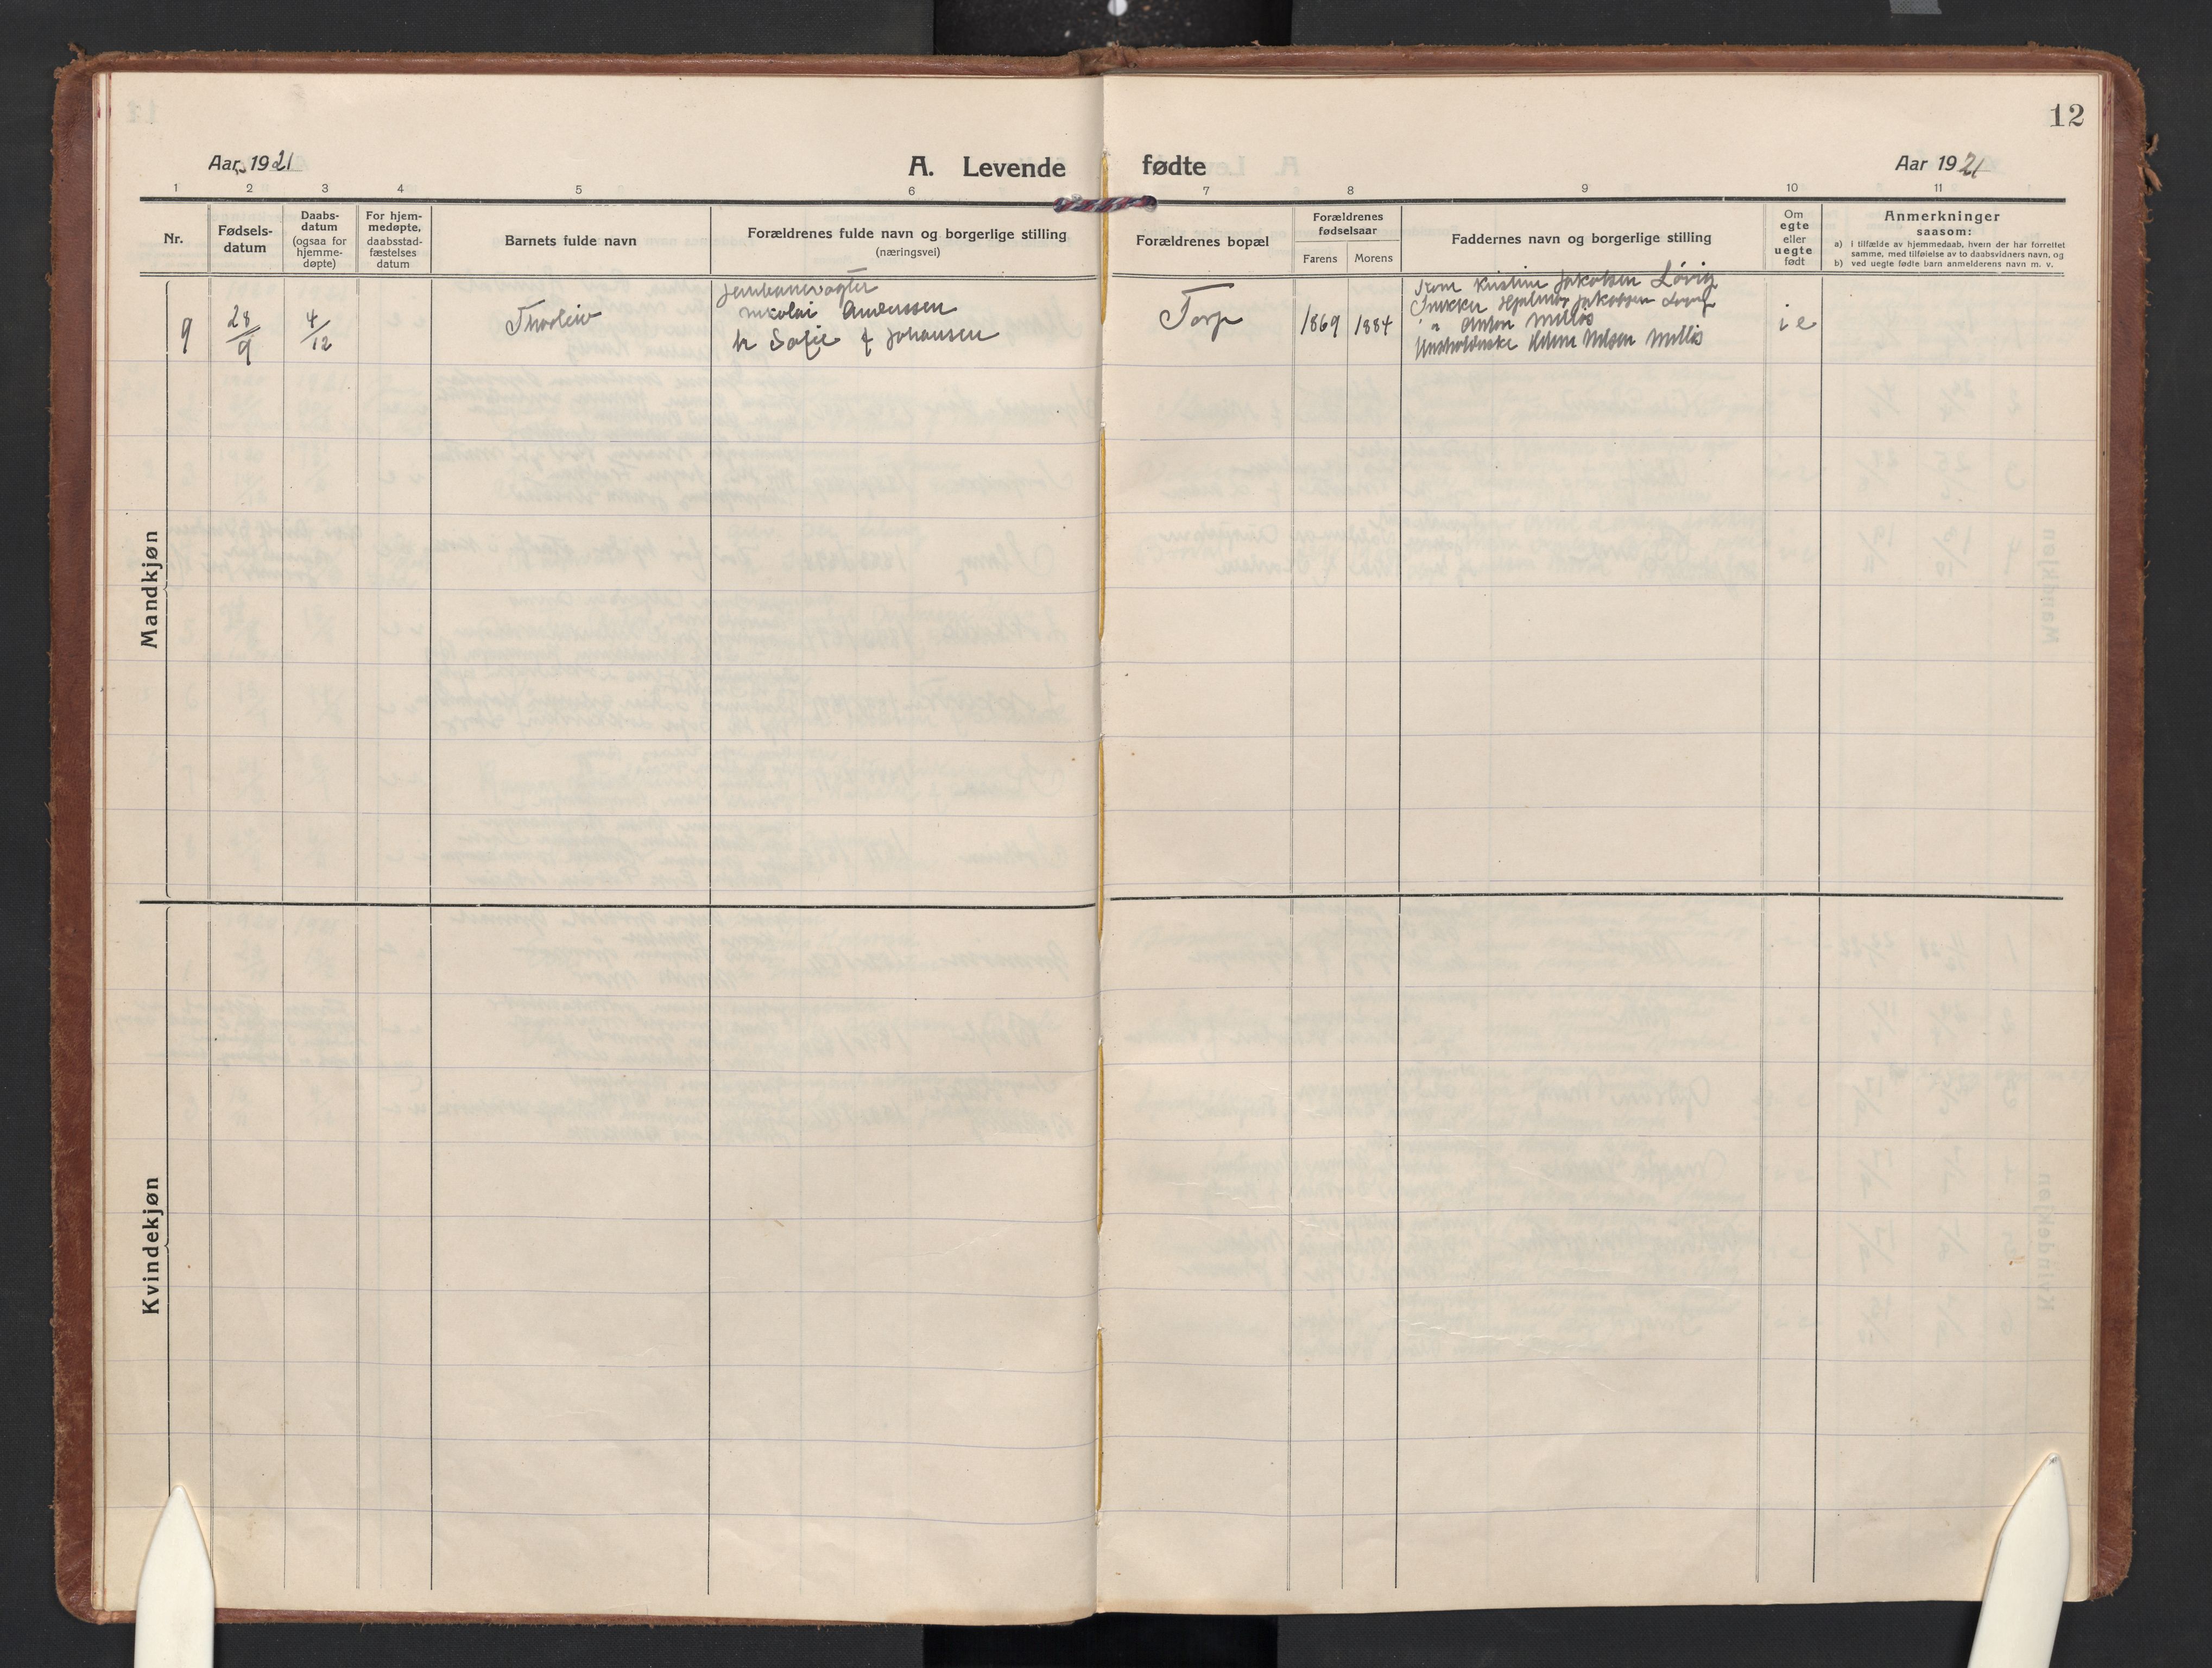 12
Aar 1921
A. Levende fødte
Aar 1921
1 2 3 4 5 6 7 8 9 10 11
Nr.
Fødsels-
datum
Daabs-
datum
(ogsaa for
hjemme-
døpte)
For hjem-
medøpte,
daabsstad-
fæstelses
datum
Barnets fulde navn
Forældrenes fulde navn og borgerlige stilling
(næringsvei)
Forældrenes bopæl
Forældrenes
fødselsaar
Farens Morens
Faddernes navn og borgerlige stilling
Om
egte
eller
uegte
født
Anmerkninger
saasom:
a) i tilfælde av hjemmedaab, hvem der har forrettet
samme, med tilføielse av to daabsvidners navn, og
b) ved uegte fødte barn anmelderens navn m. v.
Mandkjøn
9
28/9
4/12
Thorleiv
Jernbanevogter
Nikolai Anderssen
h Sofie f Johansen
Torp
1869 1884
Kristine Jakobsen Løvig
Snekker Hjalmar Jakobsen Løvig
" Anton
Nilsen
i e
Kvindekjøn